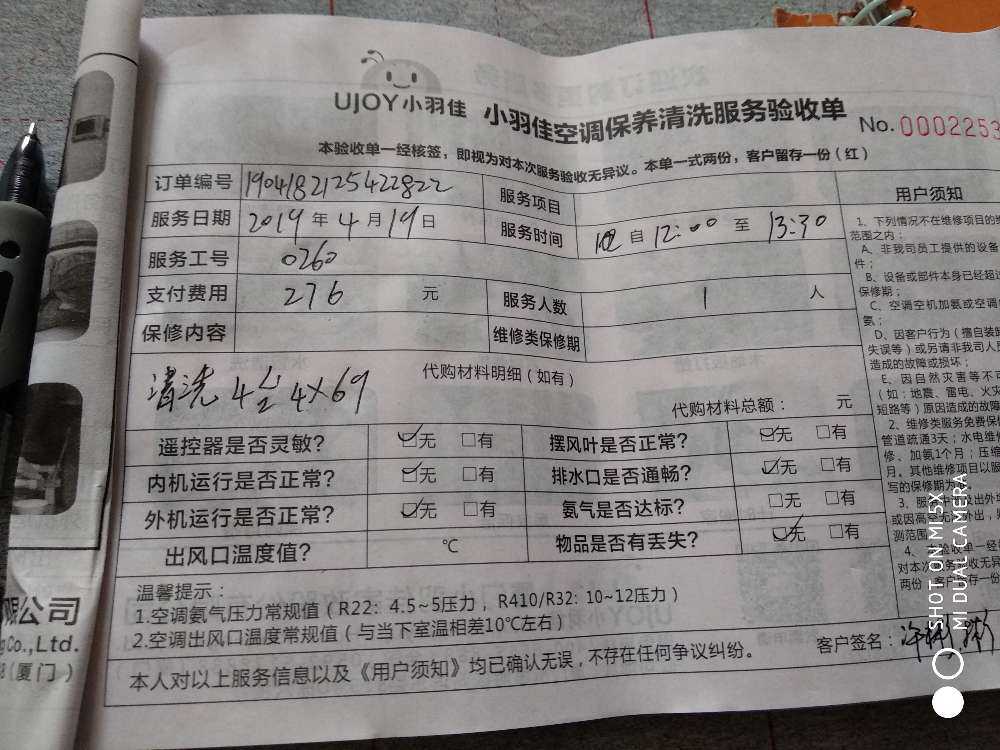 UJOY小羽佳 小羽佳空调保养清洗服务验收单 No.0002253
本验收单一经核签，即视为对本次服务验收无异议。本单一式两份，客户留存一份（红）
订单编号 1904182125422822 服务项目
服务日期 2019年4月19日 服务时间 自 12:00 至 13:30
服务工号 0260
支付费用 276 元 服务人数 1 人
保修内容 维修类保修期
清洗4台 4×69 代购材料明细（如有）
代购材料总额： 元
遥控器是否灵敏? ☑无 □有 摆风叶是否正常? ☑无 □有
内机运行是否正常? ☑无 □有 排水口是否通畅? ☑无 □有
外机运行是否正常? ☑无 □有 氨气是否达标? □无 □有
出风口温度值? ℃ 物品是否有丢失? ☑无 □有
温馨提示：
1.空调氨气压力常规值（R22: 4.5~5压力，R410/R32: 10~12压力）
2.空调出风口温度常规值（与当下室温相差10℃左右）
客户签名：
本人对以上服务信息以及《用户须知》均已确认无误，不存在任何争议纠纷。
用户须知
1、下列情况不在维修项目的
范围之内：
A、非我司员工提供的设备
件；
B、设备或部件本身已经超过
保修期；
C、空调空机加氨或空调
氨；
D、因客户行为（擅自装
失误等）或另请非我司人员
造成的故障或损坏；
E、因自然灾害等不可
（如：地震、雷电、火灾
短路等）原因造成的故障
2、维修类服务免费保
管道疏通3天；水电维
修、加氨1个月；压缩
月。其他维修项目以服
写的保修期为
3、服
或因高空
测范围
4、本验收单一经
对本次 务验收无异
两份，客户留存一份
公司
g Co.,Ltd.
（厦门）
SHOT ON MI 5X
MI DUAL CAMERA